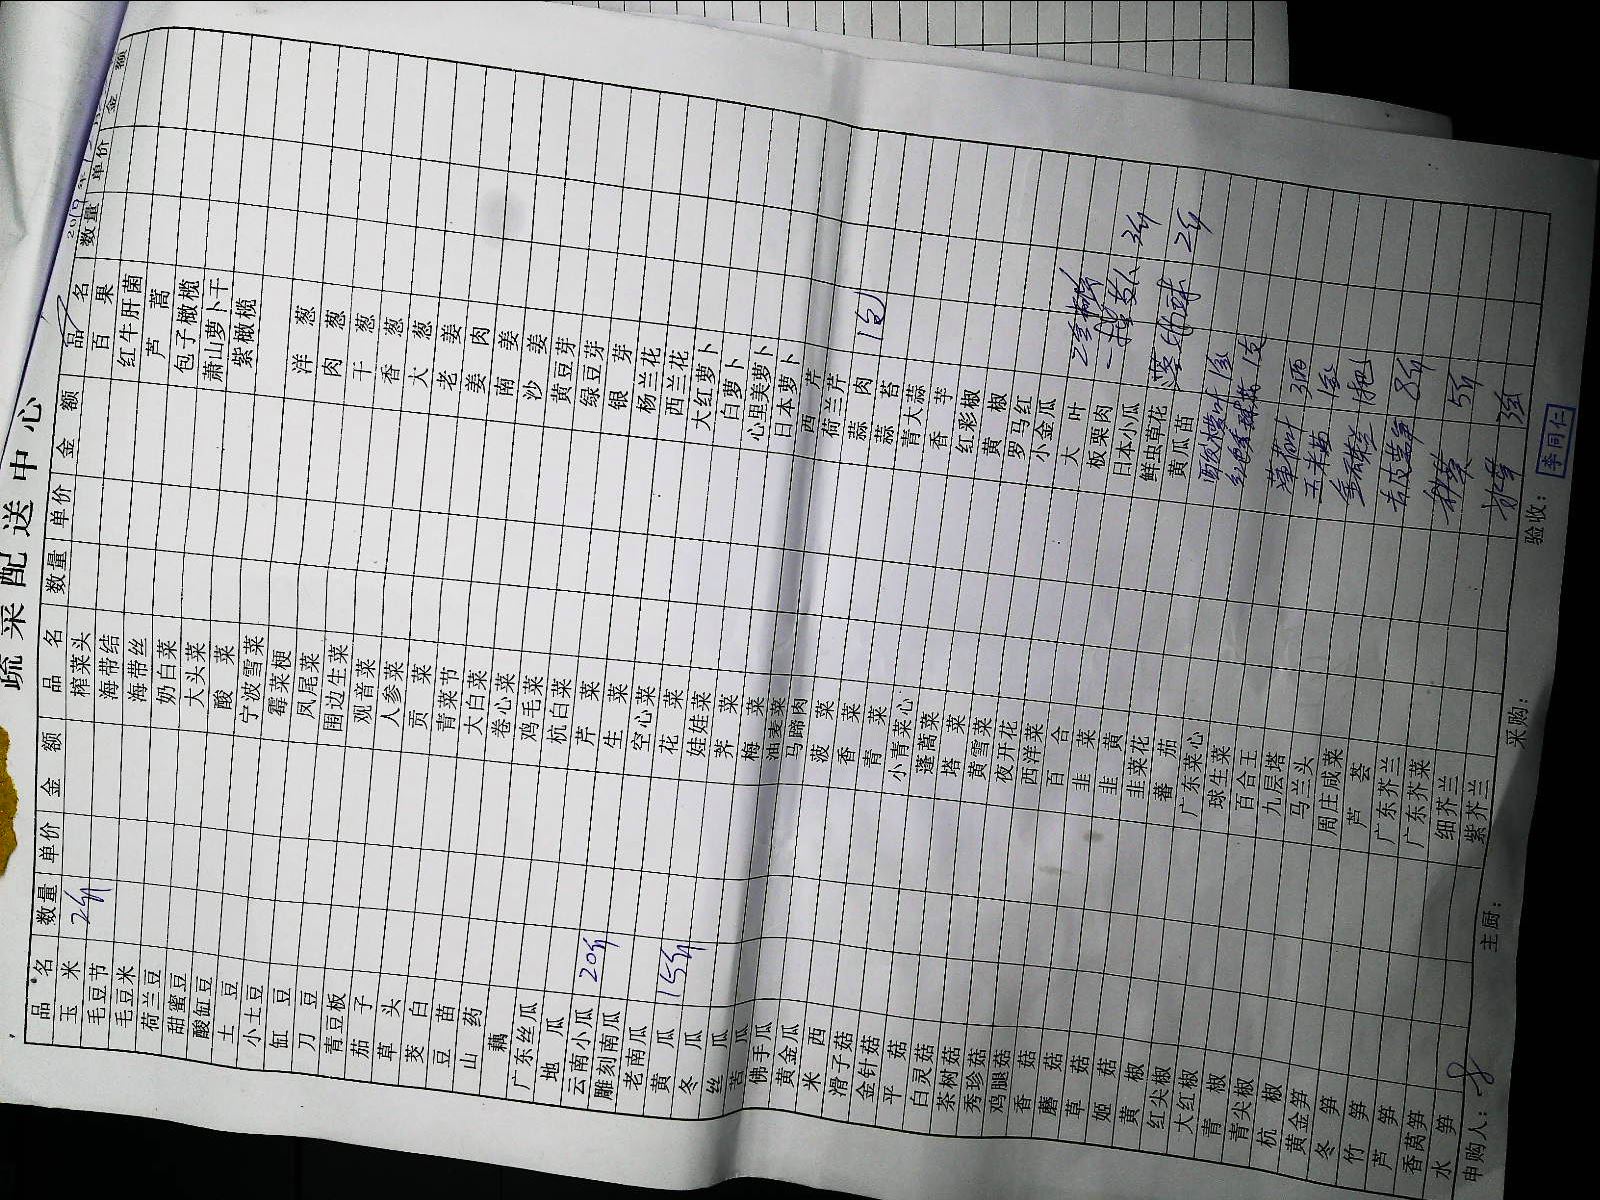 疏采配送中心
2019年
品名 数量 单价 金额 品名 数量 单价 金额 品名 数量 单价 金额
玉米 2斤 榨菜头 百果
毛豆节 海带结 红牛肝菌
毛豆米 海带丝 芦蒿
荷兰豆 奶白菜 包子橄榄
甜蜜豆 大头菜 萧山萝卜干
酸缸豆 酸菜 紫橄榄
土豆 宁波雪菜
小土豆 霉菜梗 洋葱
缸豆 凤尾菜 肉葱
刀豆 围边生菜 干葱
青豆板 观音菜 香葱
茄子 人参菜 大葱
草头 贡菜 老姜
茭白 青菜节 姜肉
豆苗 大白菜 南姜
山药 卷心菜 沙姜
藕 鸡毛菜 黄豆芽
广东丝瓜 杭白菜 绿豆芽
地瓜 芹菜 银芽
云南小瓜 20斤 生菜 杨兰花
雕刻南瓜 空心菜 西兰花
老南瓜 花菜 大红萝卜
黄瓜 15斤 娃娃菜 白萝卜
冬瓜 荠菜 心里美萝卜
丝瓜 梅菜 日本萝卜
苦瓜 油麦菜 西芹
佛手瓜 马蹄肉 荷兰芹
黄金瓜 菠菜 蒜肉
米西 香菜 蒜苔
滑子菇 青菜 青大蒜
金针菇 小青菜心 香芋
平菇 蓬蒿菜 红彩椒
白灵菇 塔菜 黄椒
茶树菇 黄雪菜 罗马红
秀珍菇 夜开花 小金瓜
鸡腿菇 西洋菜 大叶
香菇 百合 板栗肉
蘑菇 韭菜 日本小瓜 3斤
草菇 韭黄 鲜虫草花
姬菇 韭菜花 黄瓜苗 2斤
黄椒 蕃茄
红尖椒 广东菜心
大红椒 球生菜
青椒 百合王 3两
青尖椒 九层塔 玉米苗 1盒
杭椒 马兰头
黄金笋 周庄咸菜 8斤
冬笋 芦荟
竹笋 广东芥兰 5斤
芦笋 广东芥菜
香莴笋 细芥兰
水笋 紫芥兰
申购人： 主厨： 采购： 验收： 李同仁